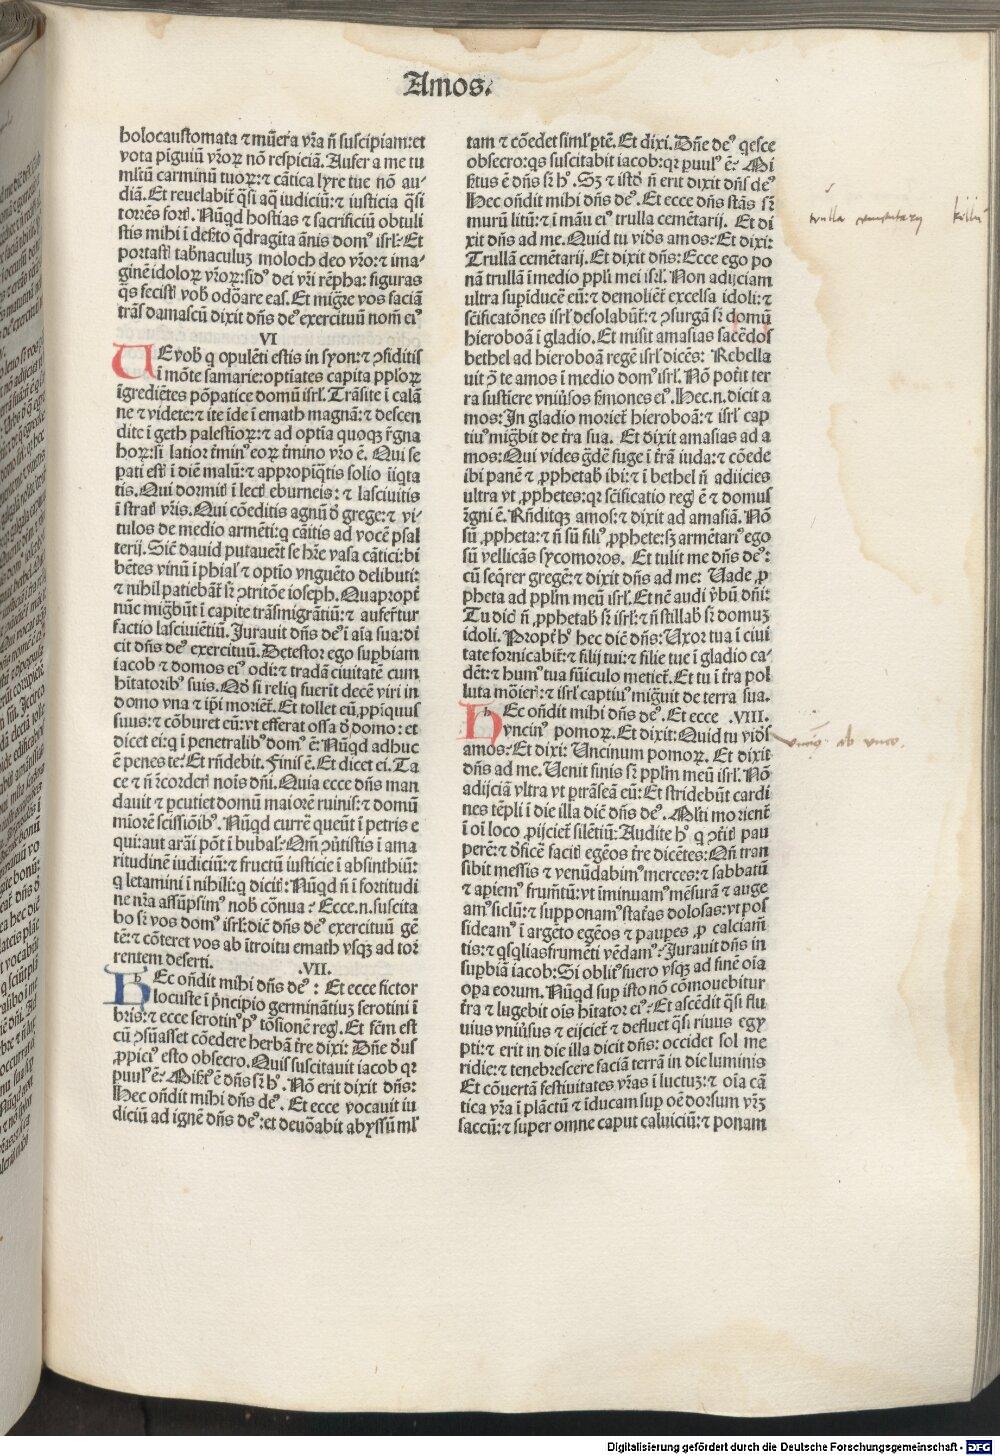 Amos.
holocaustomata ⁊ mũera vr̃a ñ suscipiam: et
vota piguiũ vr̃oꝝ nõ respiciã. Aufer a me tu
mltũ carminũ tuoꝝ: ⁊ cãtica lyre tue nõ au-
diã. Et reuelabit̃ q̃si aq̃ iudiciũ: ⁊ iusticia q̃si
torrẽs fort̃. Nũqd hostias ⁊ sacrificiũ obtuli
stis mihi ĩ deßto q̃dragita ãnis domꝰ isrl̃: Et
portast̃ tab̃naculuꝫ moloch deo vr̃o: ⁊ ima-
ginẽ idoloꝝ vr̃oꝝ: sidꝰ dei vr̃i rẽpha: figuras
q̃s fecist̃ vob̃ odõare eas. Et mig̃re vos faciã
trãs damascũ dixit dñs deꝰ exercituũ nom̃ eiꝰ
VI
UE vob̃ q̃ opulẽti estis in syon: ⁊ ꝯfiditis
ĩ mõte samarie: optiates capita pploꝝ
ĩgrediẽtes põpatice domũ isrl̃. Trãsite ĩ calã
ne ⁊ videte: ⁊ ite ide ĩ emath magnã: ⁊ descen
dite ĩ geth palestioꝝ: ⁊ ad optĩa quoqꝫ r̃gna
hoꝝ: si latior t̃minꝰ eoꝝ t̃mino vr̃o ẽ. Qui se
pati est̃ ĩ diẽ malũ: ⁊ appropiq̃tis solio iiqta
tis. Qui dormit̃ ĩ lect̃ eburneis: ⁊ lasciuitis
ĩ strat̃ vr̃is. Qui cõeditis agnũ d̃ grege: ⁊ vi-
tulos de medio armẽti: q̃ cãitis ad vocẽ psal
terij. Sic̃ dauid putauer̃t se hr̃e vasa cãtici: bi
bẽtes vinũ ĩ phial̃ ⁊ optĩo vnguẽto delibuti:
⁊ nihil patiebãt̃ sꝛ̃ ꝯtritõe ioseph. Quapropt̃
nũc migb̃ũt ĩ capite trãsmigrãtiũ: ⁊ aufert̃ur
factio lasciuiẽtiũ. Jurauit dñs deꝰ ĩ aĩa sua: di
cit dñs deꝰ exercituũ. Detestor ego supb̃iam
iacob ⁊ domos eiꝰ odi: ⁊ tradã ciuitatẽ cum
hĩtatoribꝰ suis. Qd̃ si reliq̃ fuerĩt decẽ viri in
domo vna ⁊ ip̃i moriẽt̃. Et tollet eũ ꝓpĩquus
suus: ⁊ cõburet eũ: vt efferat ossa d̃ domo: et
dicet ei: q̃ ĩ penetralibꝰ domꝰ ẽ: Nũqd adhuc
ẽ penes te: Et rñdebit. Finisꝰ ẽ. Et dicet ei. Ta
ce ⁊ ñ r̃corder̃ noĩs dñi. Quia ecce dñs man
dauit ⁊ pcutiet domũ maiorẽ ruinis: ⁊ domũ
mĩorẽ scissiõibꝰ. Nũqd currẽ queũt ĩ petris e
qui: aut arãi põt ĩ bubal̃: Qm̃ ꝯũtistis ĩ ama
ritudinẽ iudiciũ: ⁊ fructũ iusticie ĩ absinthiũ:
q̃ letamini ĩ nihili: q̃ dicit̃: Nũqd ñ ĩ fortitudi
ne nr̃a assũpsimꝰ nob̃ cõnua? Ecce.n. suscita
bo sꝛ̃ vos domꝰ isrl̃: dic̃ dñs deꝰ exercituũ gẽ
tẽ: ⁊ cõteret vos ab ĩtroitu emath vsqꝫ ad tor
rentem deserti. .VII.
HEc oñdit mihi dñs deꝰ: Et ecce fictor
locuste ĩ p̃ncipio germinãtiuꝫ serotini ĩ
bris: ⁊ ecce serotinꝰ pꝰ tõsionẽ reg̃. Et fcm̃ est
cũ ꝯsũasset cõedere herbã tr̃e dixi: Dñe d̃us
ꝓpiciꝰ esto obsecro. Quis suscitauit iacob qꝛ
puulꝰ ẽ: Misꝰt̃ ẽ dñs sꝛ̃ hꝰ. Nõ erit dixit dñs:
Hec oñdit mihi dñs deꝰ. Et ecce vocauit iu
diciũ ad ignẽ dñs deꝰ: et deuõabit abyssũ ml̃
tam ⁊ cõedet siml̃ ptẽ. Et dixi. Dñe deꝰ qesce
obsecro: qs suscitabit iacob: qꝛ puulꝰ ẽ: Mi
sꝰtus ẽ dñs sꝛ̃ hꝰ. Sꝫ ⁊ istd̃ ñ erit dixit dñs deꝰ
Hec oñdit mihi dñs deꝰ. Et ecce dñs stãs sꝛ̃
murũ litũ: ⁊ ĩ mãu eiꝰ trulla cemẽtarij. Et di
xit dñs ad me. Quid tu vid̃s amos: Et dixi:
Trullã cemẽtarij. Et dixit dñs: Ecce ego po
nã trullã ĩ medio ppli mei isrl̃. Non adijciam
ultra supĩducẽ eũ: ⁊ demoliẽt̃ excelsa idoli: ⁊
sc̃ificatõnes isrl̃ desolabũt̃: ⁊ ꝯsurgã sꝛ̃ domũ
hieroboã ĩ gladio. Et misit amasias sacẽdos
bethel ad hieroboã regẽ isrl̃ dicẽs: Rebella
uit ꝯ̃ te amos ĩ medio domꝰ isrl̃. Nõ pot̃it ter
ra sustĩere vniũsos ßmones eiꝰ. Hec.n. dicit a
mos: In gladio moriet̃ hieroboã: ⁊ isrl̃ cap
tiuꝰ migb̃it de tr̃a sua. Et dixit amasias ad a
mos: Qui vides g̃dẽ fuge ĩ tr̃ã iuda: ⁊ cõede
ibi panẽ ⁊ ꝓphetab̃ ibi: ⁊ ĩ bethel ñ adijcies
ultra vt ꝓphetes: qꝛ sc̃ificatio reg̃ ẽ ⁊ domus
r̃gni ẽ. Rñditqꝫ amos: ⁊ dixit ad amasiã. Nõ
sũ ꝓpheta: ⁊ ñ sũ filiꝰ ꝓphete: sꝫ armẽtariꝰ ego
sũ vellicãs sycomoros. Et tulit me dñs deꝰ:
cũ seq̃rer gregẽ: ⁊ dixit dñs ad me: Uade ꝓ
pheta ad pplm̃ meũ isrl̃. Et nẽ audi ṽbũ dñi:
Tu dic̃ ñ ꝓphetab̃ sꝛ̃ isrl̃: ⁊ ñ stillab̃ sꝛ̃ domuꝫ
idoli. Propt̃ hꝰ hec dic̃ dñs: Uxor tua ĩ ciui
tate fornicabit̃: ⁊ filij tui: ⁊ filie tue ĩ gladio ca-
dẽt: ⁊ humꝰ tua fũiculo metiet̃. Et tu ĩ tr̃a pol
luta mõier̃: ⁊ isrl̃ captiuꝰ mig̃uit de terra sua.
HEc oñdit mihi dñs deꝰ. Et ecce .VIII.
vncinꝰ pomoꝝ. Et dixit: Quid tu vid̃s
amos: Et dixi: Uncinum pomoꝝ. Et dixit
dñs ad me. Uenit finis sꝛ̃ pplm̃ meũ isrl̃. Nõ
adijciã vltra vt ptrãseã eũ: Et stridebũt cardi
nes tẽpli ĩ die illa dic̃ dñs deꝰ. Ml̃ti morient̃
ĩ oĩ loco ꝓijciet̃ silẽtiũ: Audite hꝰ q̃ ꝯtit̃ pau
perẽ: ⁊ d̃ficẽ facit̃ egẽos tr̃e dicẽtes: Qñ tran
sibit messis ⁊ venũdabimꝰ merces: ⁊ sabbatũ
⁊ apiemꝰ frumt̃ũ: vt ĩminuamꝰ mẽsurã ⁊ auge
amꝰ siclũ: ⁊ supponamꝰ stat̃as dolosas: vt pos
sideamꝰ ĩ argẽto egẽos ⁊ paupes ꝓ calciam̃
tis: ⁊ qsqlias frumẽti vẽdamꝰ: Jurauit dñs in
supb̃iã iacob: Si oblitꝰ fuero vsqꝫ ad finẽ oĩa
opa eorum. Nũqd sup isto nõ cõmouebitur
tr̃a ⁊ lugebit oĩs hĩtator eiꝰ: Et ascẽdit q̃si flu
uius vniũsus ⁊ eijciet̃ ⁊ defluet q̃si riuus egy
pti: ⁊ erit in die illa dicit dñs: occidet sol me
ridie: ⁊ tenebrescere faciã terrã in die luminis
Et cõuertã festiuitates vr̃as ĩ luctuꝫ: ⁊ oĩa cã
tica vr̃a ĩ plãctũ ⁊ ĩducam sup oẽ dorsum vr̃ꝫ
saccũ: ⁊ super omne caput caluiciũ: ⁊ ponam
trulla cementarij
uncinꝰ ab unco.
Digitalisierung gefördert durch die Deutsche Forschungsgemeinschaft - DFG